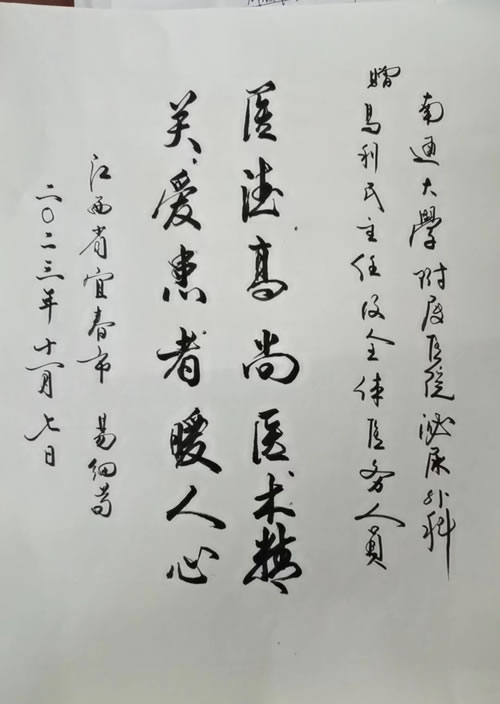 南通大學附属医院泌尿外科
赠马利民主任及全体医务人员
医德高尚医术精
关爱患者暖人心
江西省宜春市 易细苟
二〇二三年十一月七日